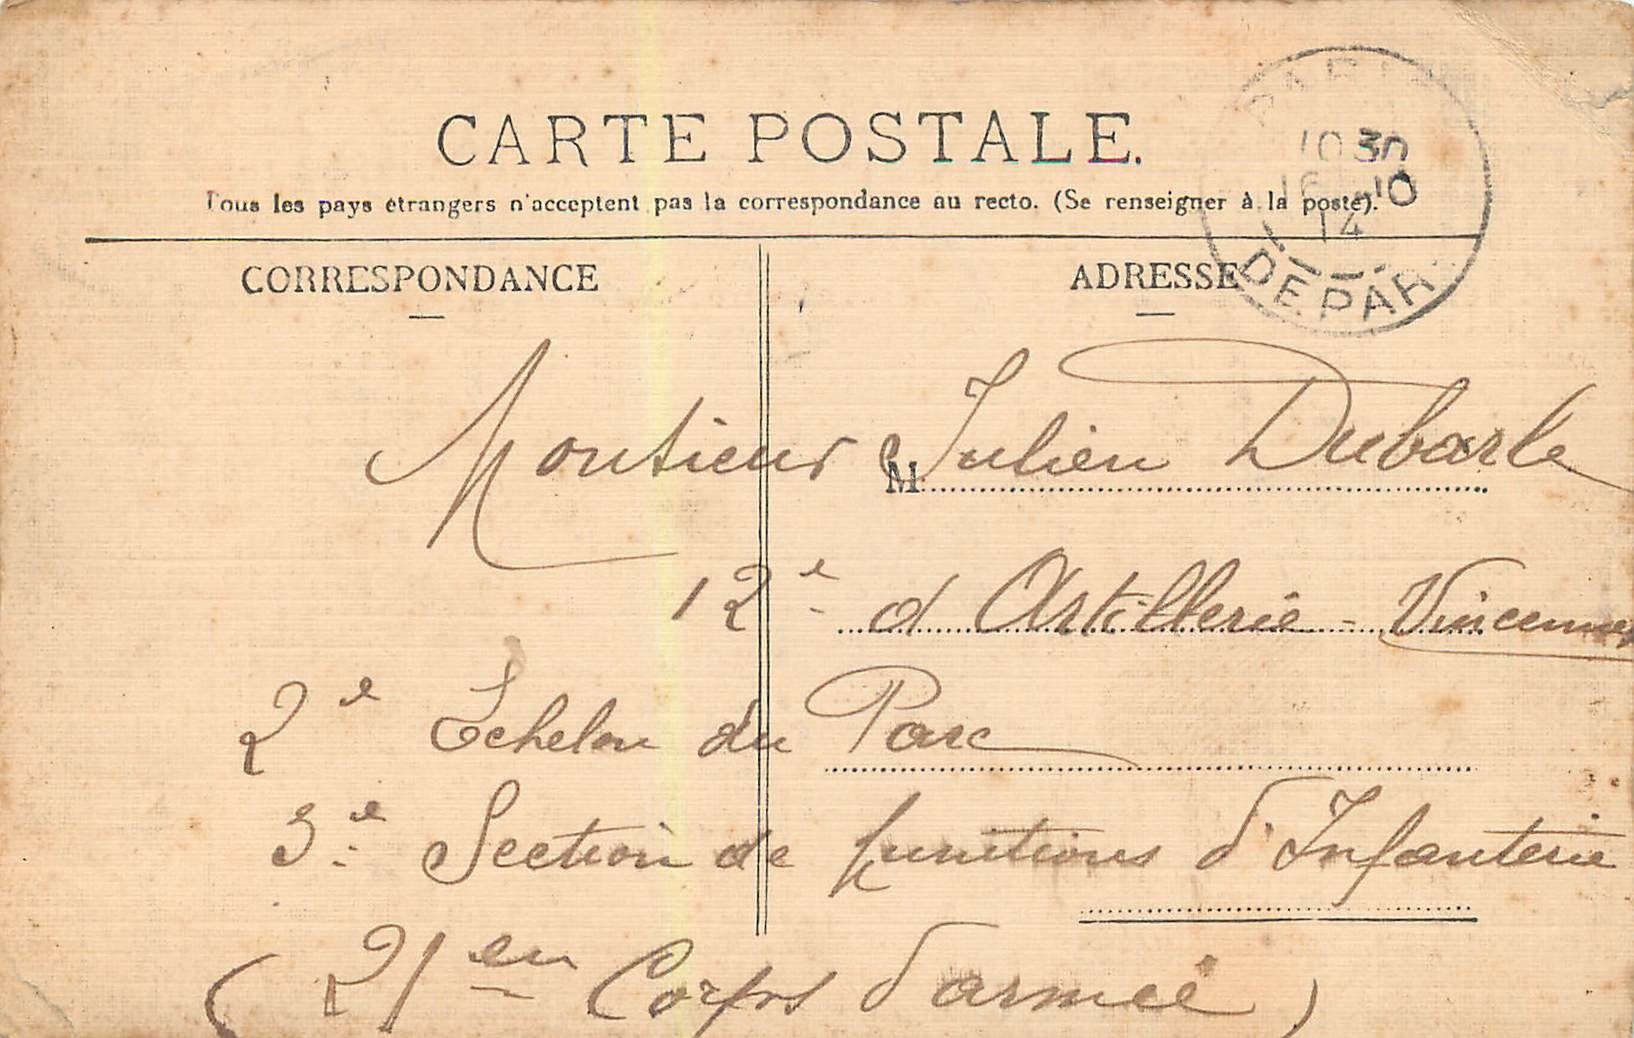 CARTE POSTALE.
Tous les pays étrangers n'acceptent pas la correspondance au recto. (Se renseigner à la poste).
PARIS
10 30
16 -10
14
DEPART
CORRESPONDANCE
ADRESSE
M
Monsieur Julien Dubarle
12e d'Artillerie - Vincennes
2e Echelon du Parc
3e Section de munitions d'Infanterie
(21en Corps d'armée)